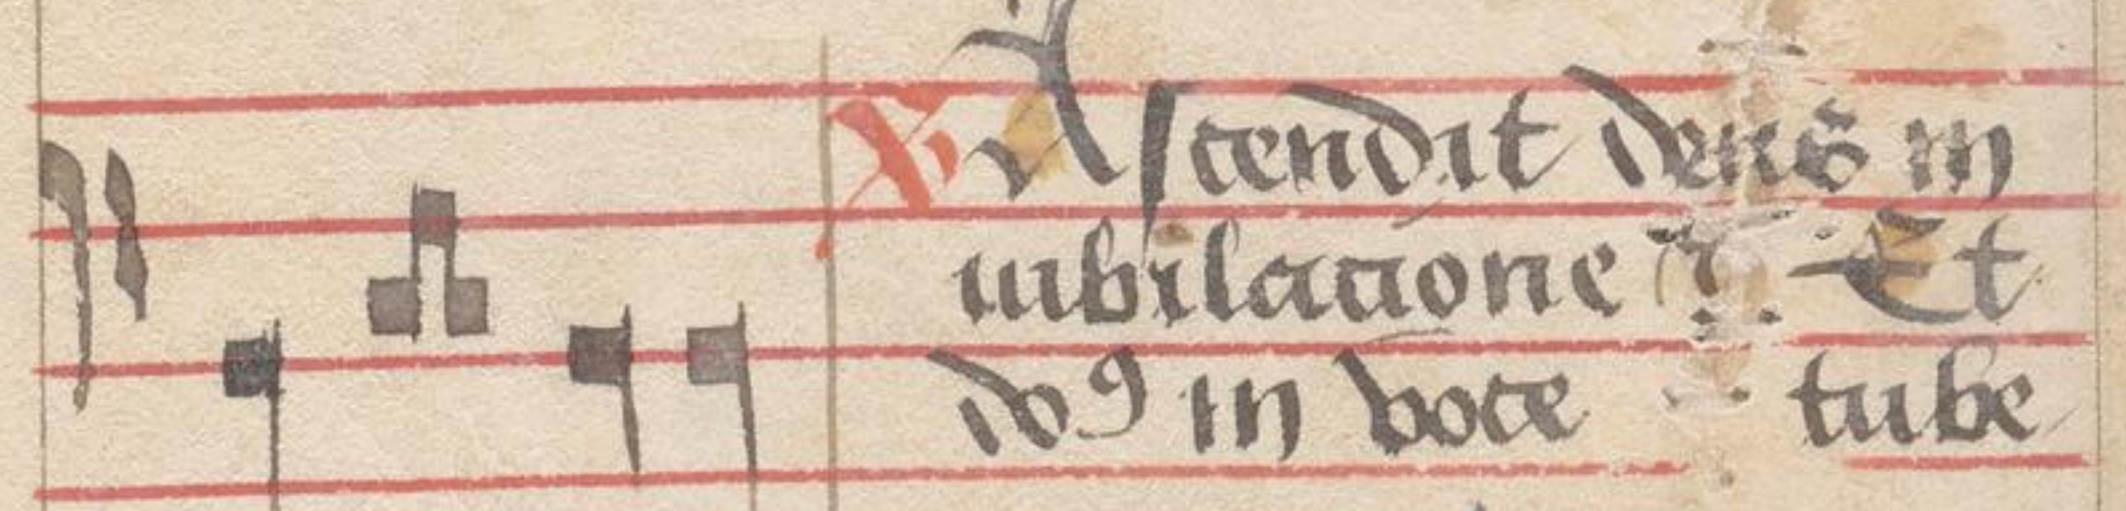 ℣ Ascendit deus in
iubilacione Et
doꝰ in voce tube